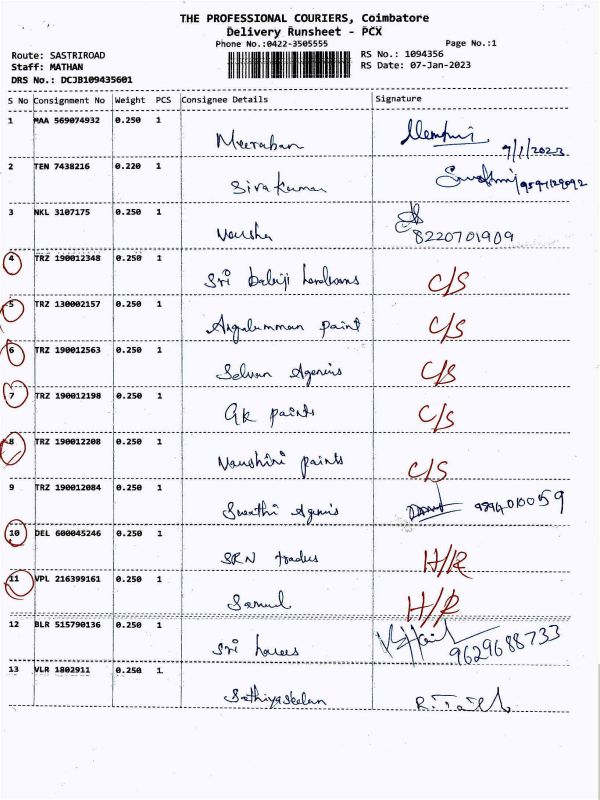 THE PROFESSIONAL COURIERS, Coimbatore
Delivery Runsheet - PCX
Phone No.:0422-3505555 Page No.:1
Route: SASTRIROAD RS No.: 1094356
Staff: MATHAN RS Date: 07-Jan-2023
DRS No.: DCJB109435601
S No Consignment No Weight PCS Consignee Details Signature
1 MAA 569074932 0.250 1
Meeraban 7/1/2023
2 TEN 7438216 0.220 1
Siva kumar
3 NKL 3107175 0.250 1
Varsha 8220701909
4 TRZ 190012348 0.250 1
Sri balaji C/S
5 TRZ 130002157 0.250 1
Angalamman paint C/S
6 TRZ 190012563 0.250 1
Selvan Agencies C/S
7 TRZ 190012198 0.250 1
GK paints C/S
8 TRZ 190012208 0.250 1
Varshini paints C/S
9 TRZ 190012084 0.250 1
Swathi Agencis
10 DEL 600045246 0.250 1
SRN traders H/R
11 VPL 216399161 0.250 1
Samuel H/R
12 BLR 515790136 0.250 1
Sri 9629688733
13 VLR 1802911 0.250 1
Sathiyaseelan